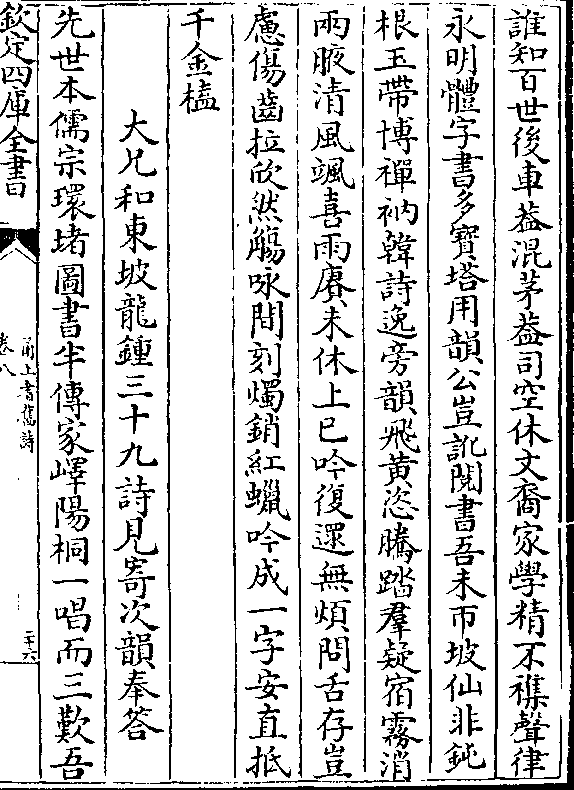 誰知百世後車葢混茅葢司空休文裔家學精不襍聲律
永明體字書多寳塔用韻公豈訛閱書吾未帀坡仙非鈍
根玉帶博禪衲韓詩逸旁韻飛黃恣騰踏羣疑宿霧消
兩腋清風颯喜雨賡未休上巳吟復還無煩問舌存豈
慮傷齒拉欣然觴咏間刻燭銷紅蠟吟成一字安直抵
千金榼
大兄和東坡龍鍾三十九詩見寄次韻奉答
先世本儒宗環堵圖書半傳家嶧陽桐一唱而三歎吾
欽定四庫全書
甬上耆舊詩
卷八
三六